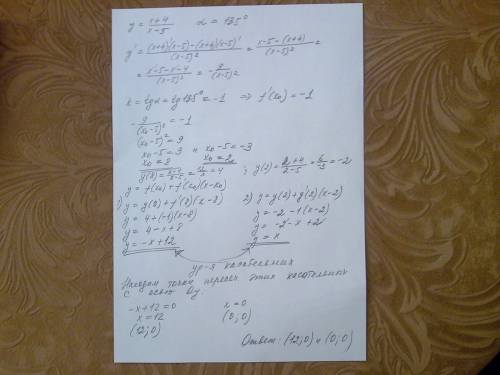 y = x+4/x-5    α = 135°
y' = (x+4)'(x-5)-(x+4)(x-5)'/(x-5)² = x-5-(x+4)/(x-5)² =
= x-5-x-4/(x-5)² = -9/(x-5)²
k = tgα = tg135° = -1 ⇒ f'(x₀) = -1
-9/(x₀-5)² = -1
(x₀-5)² = 9
x₀-5=3 и x₀-5=-3
x₀ = 8    x₀ = 2
y(8) = 8+4/8-5 = 12/3 = 4 ; y(2) = 2+4/2-5 = 6/-3 = -2
y = f(x₀)+f'(x₀)(x-x₀)
1) y = y(8)+f'(8)(x-8)    2) y = y(2)+y'(2)(x-2)
y = 4+(-1)(x-8)    y = -2-1(x-2)
y = 4-x+8    y = -2-x+2
y = -x+12    y = x
ур-я касательных
Находим точки пересеч этих касательных
с осью Oy.
-x+12=0    x=0
x=12    (0;0)
(12;0)
Ответ: (12;0) и (0;0)